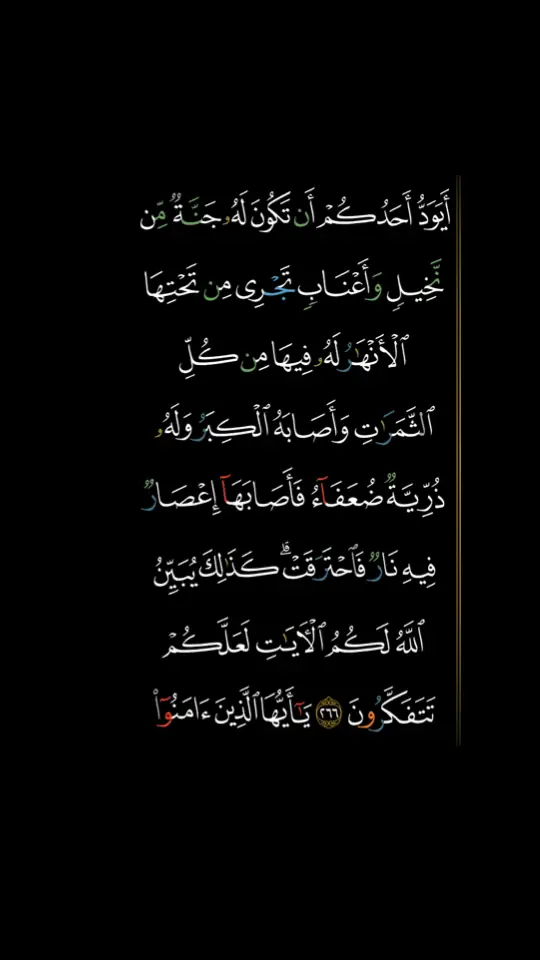 أَيَوَدُّ أَحَدُكُمْ أَن تَكُونَ لَهُۥ جَنَّةٌ مِّن
نَّخِيلٍ وَأَعْنَابٍ تَجْرِى مِن تَحْتِهَا
ٱلْأَنْهَٰرُ لَهُۥ فِيهَا مِن كُلِّ
ٱلثَّمَرَٰتِ وَأَصَابَهُ ٱلْكِبَرُ وَلَهُۥ
ذُرِّيَّةٌ ضُعَفَآءُ فَأَصَابَهَآ إِعْصَارٌ
فِيهِ نَارٌ فَٱحْتَرَقَتْ ۗ كَذَٰلِكَ يُبَيِّنُ
ٱللَّهُ لَكُمُ ٱلْـَٔايَٰتِ لَعَلَّكُمْ
تَتَفَكَّرُونَ ٢٦٦ يَٰٓأَيُّهَا ٱلَّذِينَ ءَامَنُوٓا۟